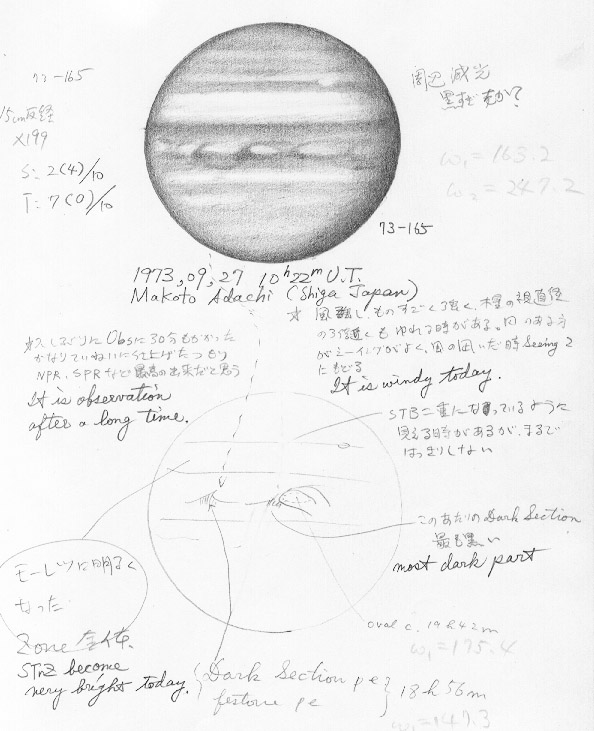 73-165
15cm反経
×199
S: 2(4)/10
T: 7(0)/10
周辺減光
ω₁=163.2
ω₂=247.2
73-165
1973,09,27 10ʰ22ᵐ U.T.
Makoto Adachi (Shiga Japan)
久しぶりにObsに30分もかかった
かなりていねいに仕上げたつもり
NPR, SPRなど最高の出来だと思う
It is observation
after a long time.
☆ 風強し。ものすごく強く、木星の視直径
の3倍近くもゆれる時がある。風のある方
がシーイングがよく、風の凪いだ時Seeing 2
にもどる
It is windy today.
STB二重になっているように
見える時があるが、まるで
はっきりしない
このあたりのDark Section
最も黒い
most dark part
モーレツに明るく
なった
Zone 全体.
STrZ become
very bright today.
oval c. 19h42m
ω₁=175.4
Dark Section pe
festone pe
18h56m
ω₁=147.3